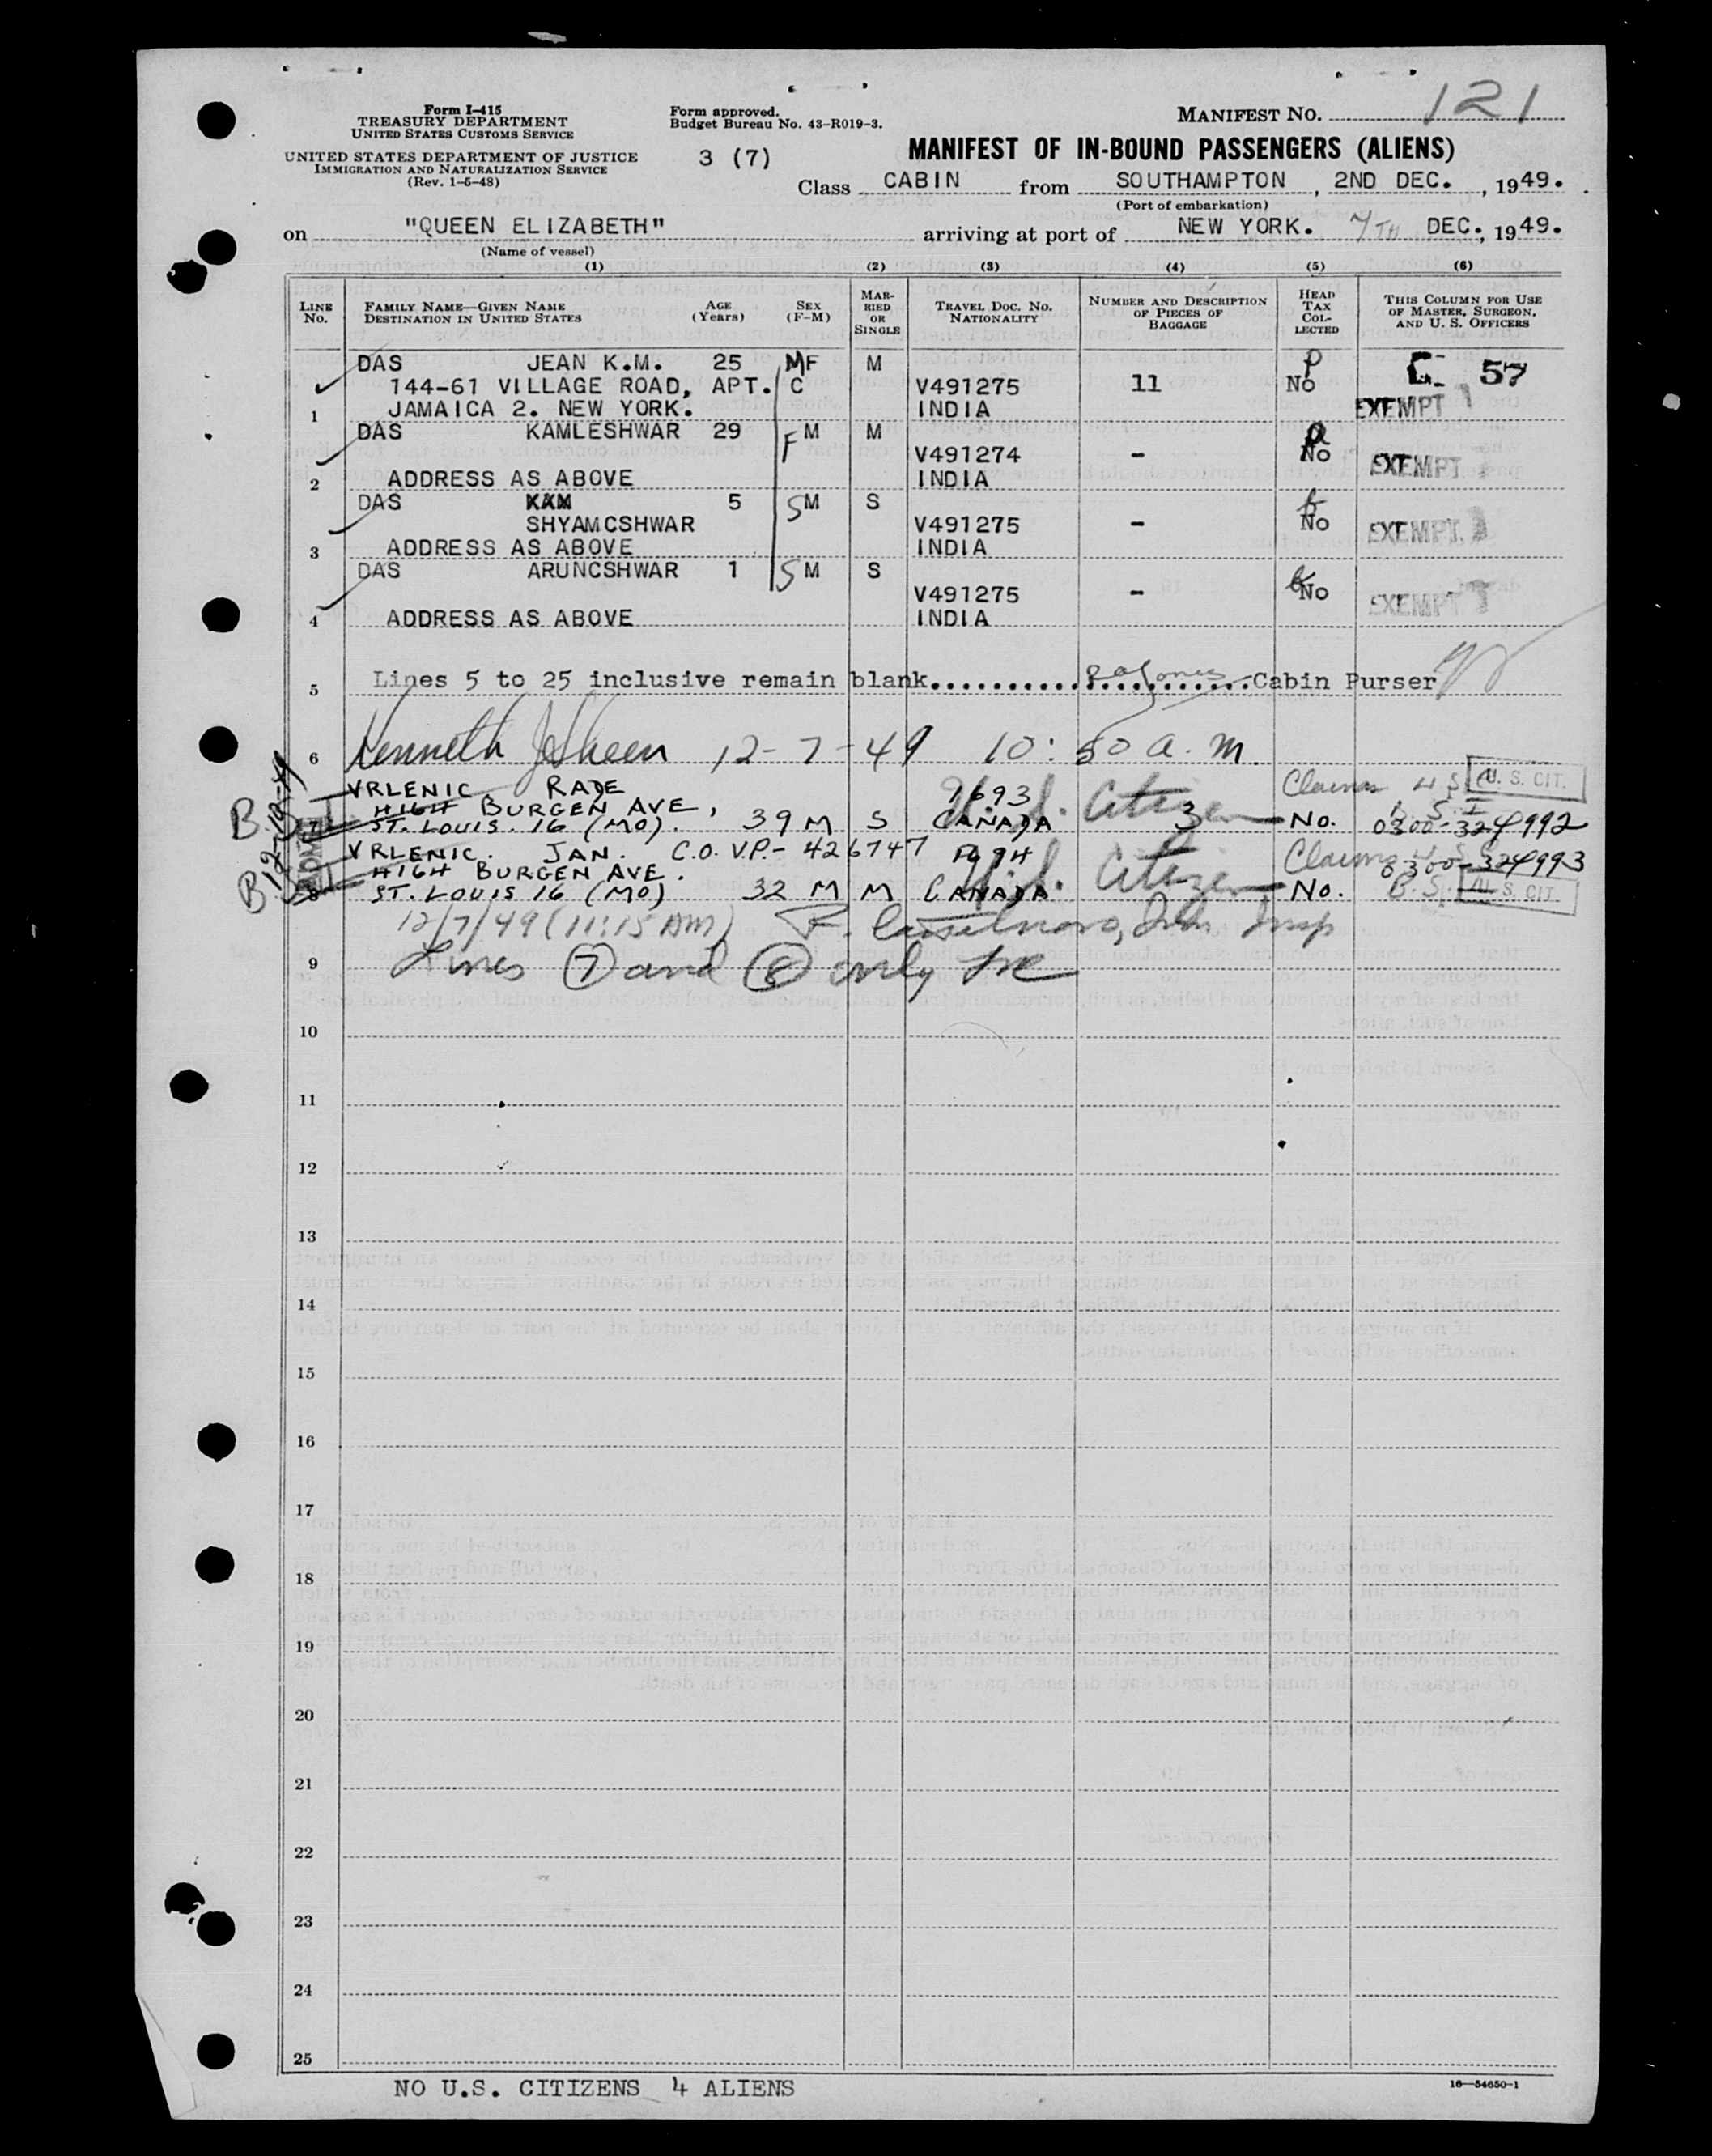 Form I-415
TREASURY DEPARTMENT
UNITED STATES CUSTOMS SERVICE
UNITED STATES DEPARTMENT OF JUSTICE
IMMIGRATION AND NATURALIZATION SERVICE
(Rev. 1-5-48)
Form approved.
Budget Bureau No. 43-R019-3.
3 (7)
MANIFEST NO. 121
MANIFEST OF IN-BOUND PASSENGERS (ALIENS)
Class CABIN from SOUTHAMPTON, 2ND DEC., 1949.
(Port of embarkation)
on "QUEEN ELIZABETH" arriving at port of NEW YORK. 7TH DEC., 1949.
(Name of vessel)
(1) (2) (3) (4) (5) (6)
LINE No. FAMILY NAME—GIVEN NAME DESTINATION IN UNITED STATES AGE (Years) SEX (F-M) MARRIED OR SINGLE TRAVEL DOC. NO. NATIONALITY NUMBER AND DESCRIPTION OF PIECES OF BAGGAGE HEAD TAX COLLECTED THIS COLUMN FOR USE OF MASTER, SURGEON, AND U. S. OFFICERS
DAS JEAN K.M. 25 MF M P 57
144-61 VILLAGE ROAD, APT. C V491275 11 No
1 JAMAICA 2. NEW YORK. INDIA EXEMPT
DAS KAMLESHWAR 29 F M M
V491274 - No EXEMPT
2 ADDRESS AS ABOVE INDIA
DAS KAM 5 S M S
SHYAMCSHWAR V491275 - No EXEMPT
3 ADDRESS AS ABOVE INDIA
DAS ARUNCSHWAR 1 S M S
V491275 - No EXEMPT
4 ADDRESS AS ABOVE INDIA
5 Lines 5 to 25 inclusive remain blank.......... Cabin Purser
6 Kenneth 12-7-49 10:50 a.m.
VRLENIC RADE 7693 U.S. Citizen Claims U S C U. S. CIT.
HIGH BURGEN AVE,
7 ST. LOUIS. 16 (MO). 39 M S CANADA 3 No. 0300-324992
VRLENIC. JAN. C.O. V.P.- 426747 U.S. Citizen Claims 0300-324993
HIGH BURGEN AVE.
8 ST. LOUIS 16 (MO) 32 M M CANADA No. B.S. U. S. CIT.
12/7/49 (11:15 AM)
9 Lines 7 and 8 only
10
11
12
13
14
15
16
17
18
19
20
21
22
23
24
25
NO U.S. CITIZENS 4 ALIENS
16—54650-1